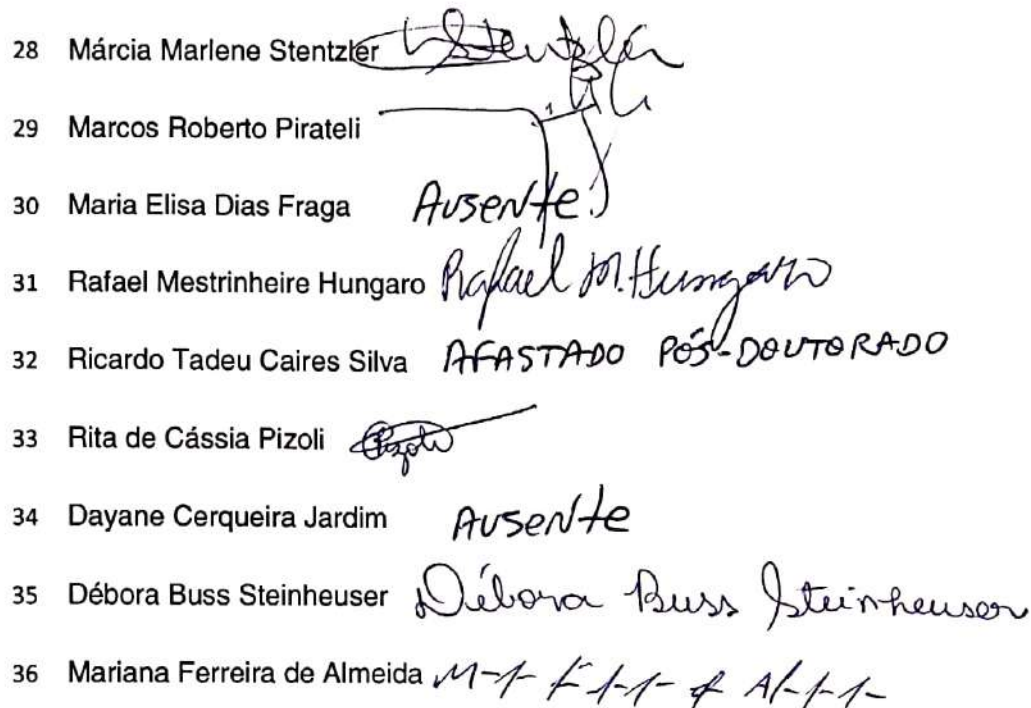 28 Márcia Marlene Stentzler Stentzler
29 Marcos Roberto Pirateli
30 Maria Elisa Dias Fraga Ausente
31 Rafael Mestrinheire Hungaro Rafael M. Hungaro
32 Ricardo Tadeu Caires Silva AFASTADO PÓS-DOUTORADO
33 Rita de Cássia Pizoli Pizoli
34 Dayane Cerqueira Jardim Ausente
35 Débora Buss Steinheuser Débora Buss Steinheuser
36 Mariana Ferreira de Almeida